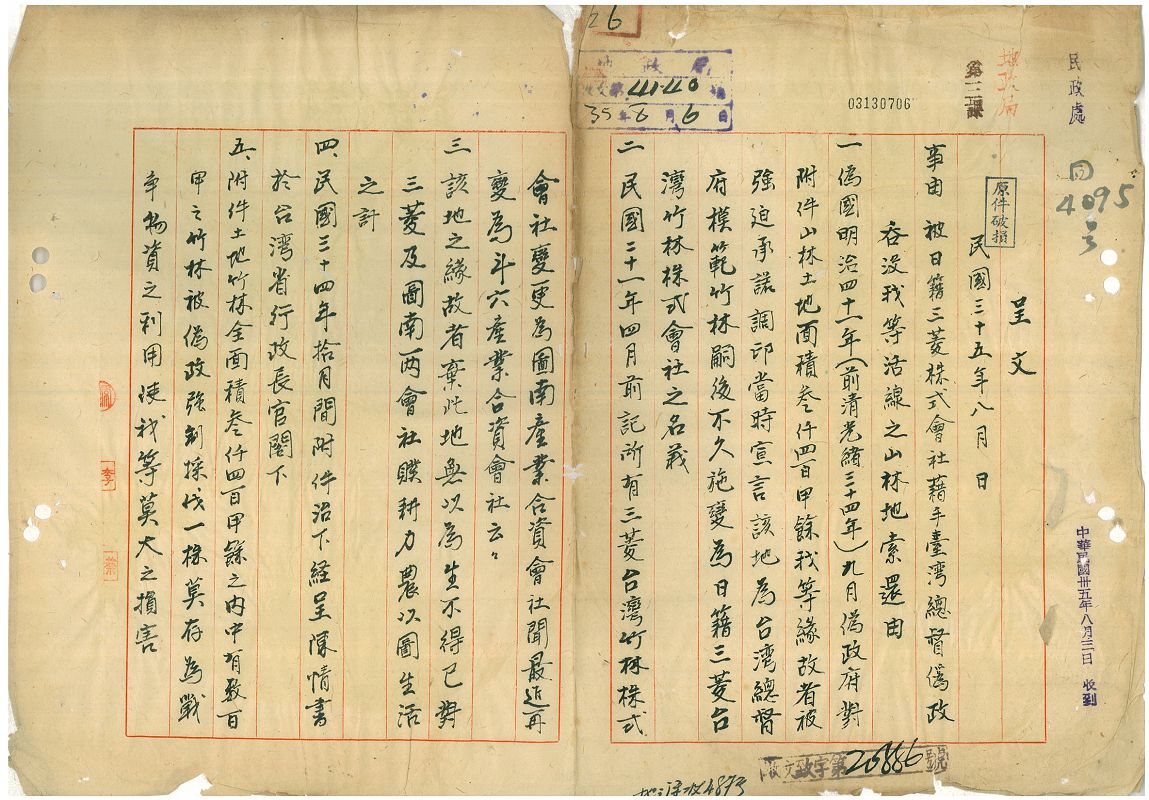 民政處
同
4095
号
地政局
03130706
35年8月6日
26
原件破損
中華民國卅五年八月三日 收到
呈文
民國三十五年八月 日
事由 被日籍三菱株式會社藉手臺湾總督偽政
吞没我等活線之山林地索還由
一 偽國明治四十一年(前清光緒三十四年)九月偽政府對
附件山林土地面積叁仟四百甲餘我等緣故者被
強迫承諾調印當時宣言該地為台湾總督
府模範竹林嗣後不久施變為日籍三菱台
灣竹林株式會社之名義
二 民國三十一年四月前記所有三菱台灣竹林株式
會社變更為圖南產業合資會社聞最近再
變為斗六產業合資會社云々
三 該地之緣故者棄此地無以為生不得已對
三菱及圖南两會社贌耕力農以圖生活
之計
四、民國三十四年拾月間附件洽下経呈陳情書
於台湾省行政長官閣下
五、附件土地竹林全面積叁仟四百甲餘之内中有数百
甲之竹林被偽政強制採伐一株莫存為戰
争物資之利用使我等莫大之損害
收文致字第20886號